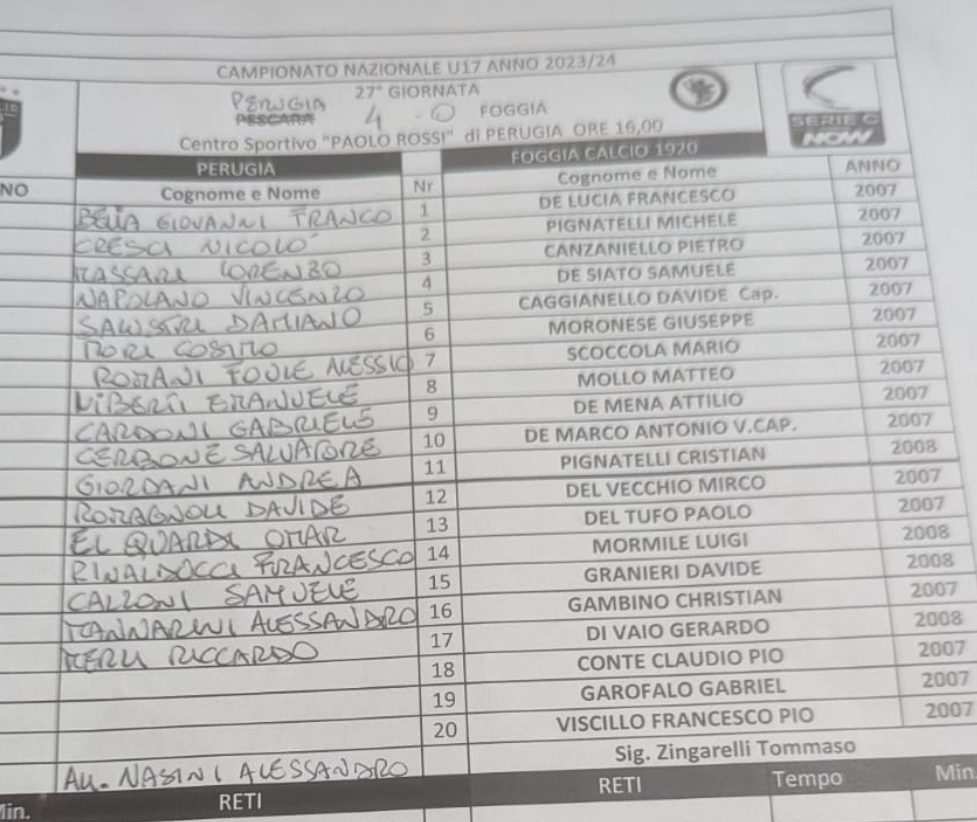 CAMPIONATO NAZIONALE U17 ANNO 2023/24
27° GIORNATA
PERUGIA
PESCARA 4 - 0 FOGGIA
Centro Sportivo "PAOLO ROSSI" di PERUGIA ORE 16,00
SERIE C
NOW
PERUGIA FOGGIA CALCIO 1920
NO Cognome e Nome Nr Cognome e Nome ANNO
GIOVANNI FRANCO 1 DE LUCIA FRANCESCO 2007
CRESCI NICOLO' 2 PIGNATELLI MICHELE 2007
LORENZO 3 CANZANIELLO PIETRO 2007
NAPOLANO VINCENZO 4 DE SIATO SAMUELE 2007
DAMIANO 5 CAGGIANELLO DAVIDE Cap. 2007
COSIMO 6 MORONESE GIUSEPPE 2007
ROMANI FOULE ALESSIO 7 SCOCCOLA MARIO 2007
VIBERTI EMANUELE 8 MOLLO MATTEO 2007
CARDONI GABRIELE 9 DE MENA ATTILIO 2007
CERBONE SALVATORE 10 DE MARCO ANTONIO V.CAP. 2007
GIORDANI ANDREA 11 PIGNATELLI CRISTIAN 2008
ROMAGNOLI DAVIDE 12 DEL VECCHIO MIRCO 2007
EL QUARDI OMAR 13 DEL TUFO PAOLO 2007
FRANCESCO 14 MORMILE LUIGI 2008
CALZONI SAMUELE 15 GRANIERI DAVIDE 2008
ALESSANDRO 16 GAMBINO CHRISTIAN 2007
RICCARDO 17 DI VAIO GERARDO 2008
18 CONTE CLAUDIO PIO 2007
19 GAROFALO GABRIEL 2007
20 VISCILLO FRANCESCO PIO 2007
All. NASINI ALESSANDRO Sig. Zingarelli Tommaso
Min. RETI RETI Tempo Min.